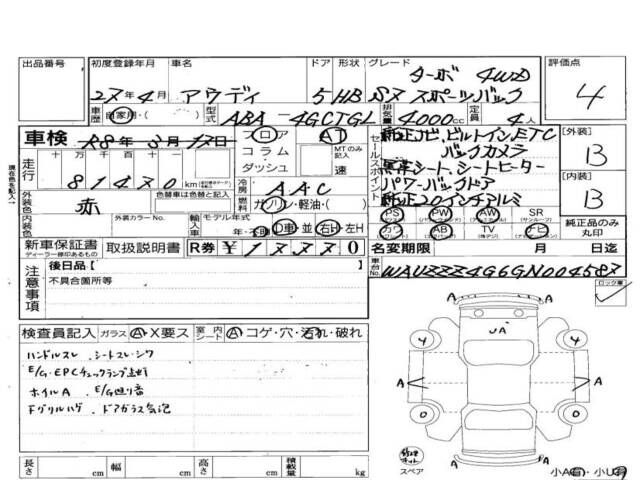 出品番号 初度登録年月 車名 ドア 形状 グレード 評価点
27年4月 アウディ 5 HB S7 スポーツバック ターボ 4WD 4
車歴 自家用・( ) 型式 ABA-4GCTGL 排気量 4000cc 定員 4人
車検 R8年3月17日 フロア AT
コラム
ダッシュ
MTのみ記入
速
セールスポイント
純正ナビ、ビルトインETC
バックカメラ
黒革シート、シートヒーター
パワーバックドア
純正20インチアルミ
[外装]
B
[内装]
B
走行 十万 万 千 百 十
81470 km
冷房 AAC
燃料 ガソリン・軽油・( )
外装色 赤 色替車は色替と記入
内装色 外装カラーNo.
輸入車 モデル年式 D車・並 右H・左H
PS PW AW SR (サンルーフ)
カワ AB TV ナビ
純正品のみ丸印
新車保証書 取扱説明書 R券 ¥ 0
ディーラー捺印あるもの
名変期限 月 日迄
注意事項
後日品[
不具合箇所等
車台No. WAUZZZ4G6GN004587
ロック車
検査員記入 ガラス A・X要ス 室内シート A・コゲ・穴・汚れ・破れ
ハンドルスレ、シートスレ・シワ
E/G・EPCチェックランプ点灯
ホイルA、E/G廻り音
Fグリルハゲ、ドアガラス気泡
UA
4 4
A A
A A
0 0
A A
スペア
長さ cm 幅 cm 高さ cm 積載量 kg
小A・小U